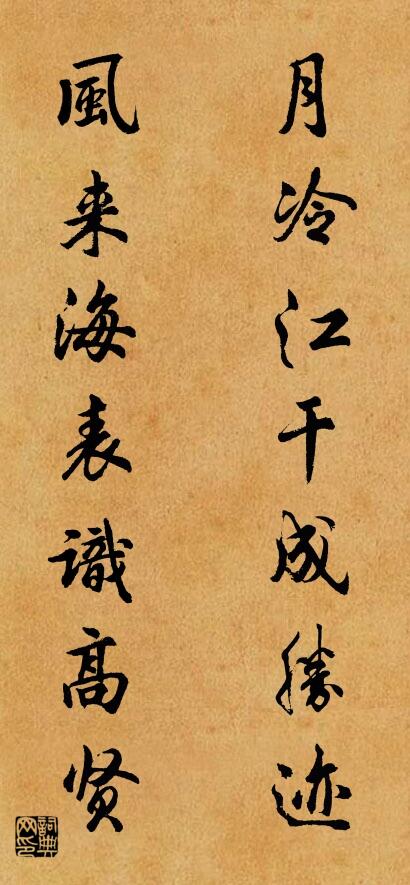 月冷江干成勝迹
風来海表識高贤
詞典网印